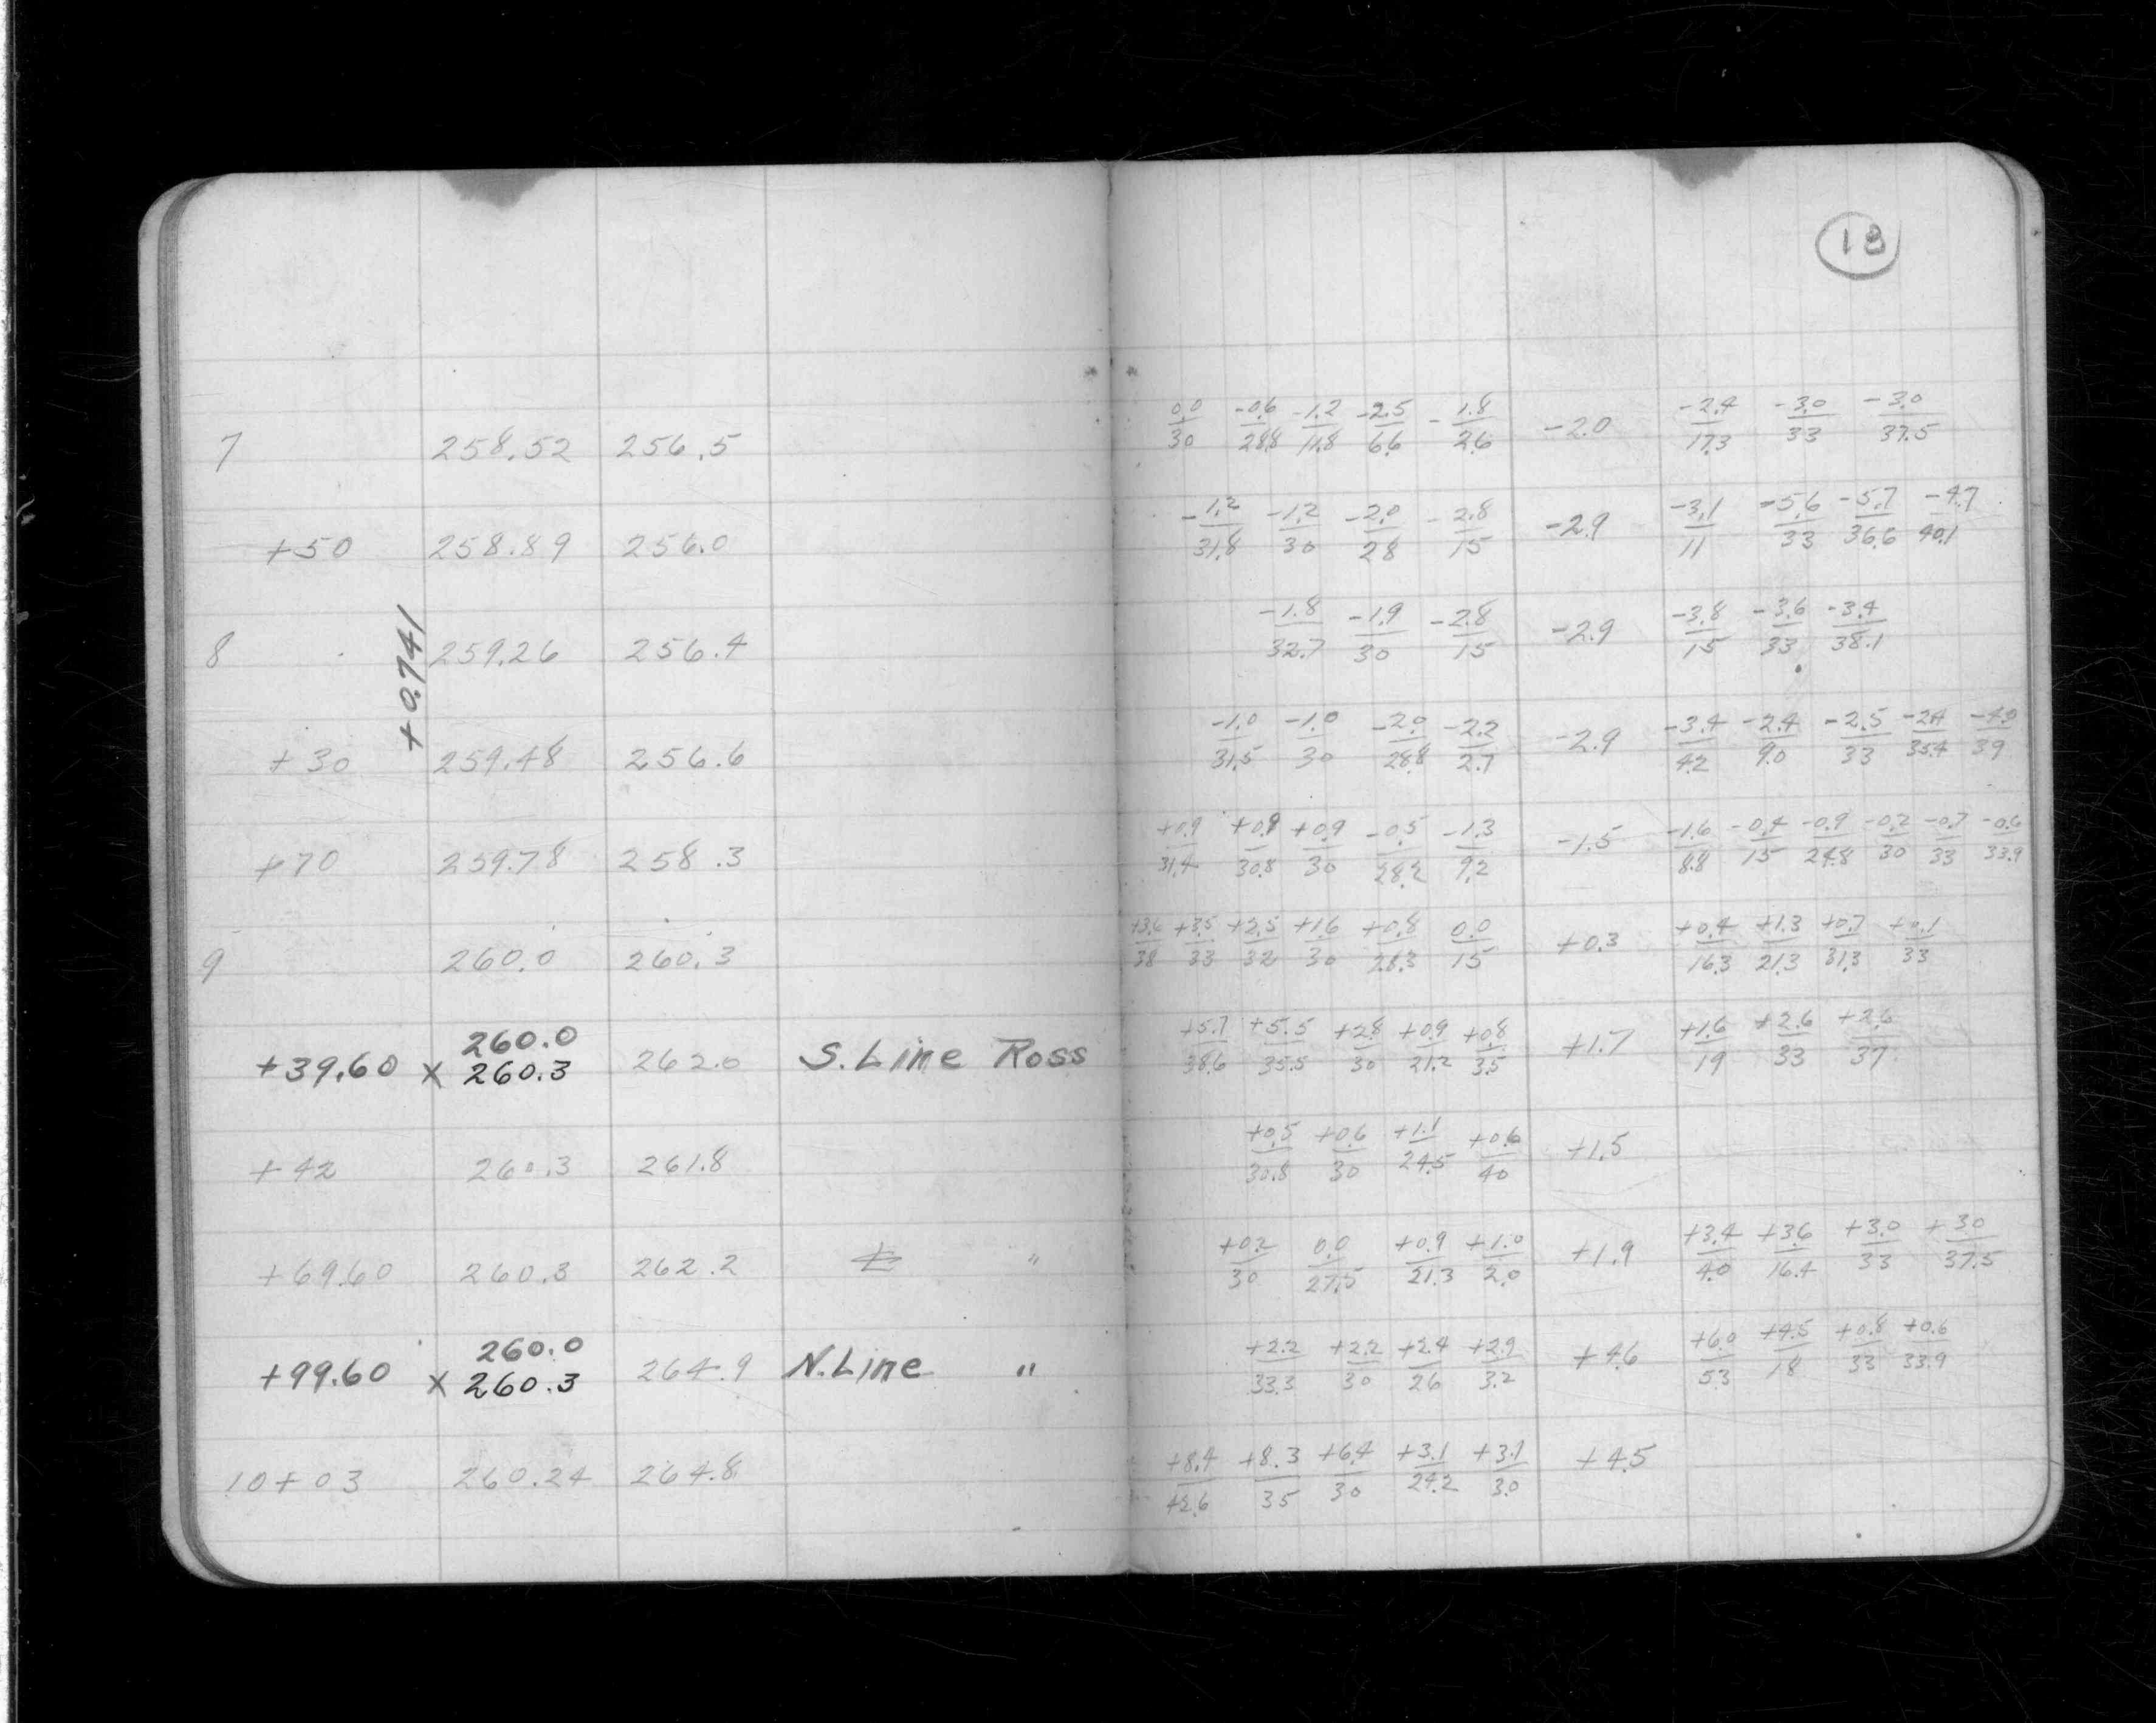 18
0.0 -0.6 -1.2 -2.5 -1.8 -2.4 -3.0 -3.0
7 258.52 256.5 -2.0
30 28.8 11.8 6.6 2.6 17.3 33 37.5
-1.2 -1.2 -2.0 -2.8 -3.1 -5.6 -5.7 -4.7
+50 258.89 256.0 -2.9
31.8 30 28 15 11 33 36.6 40.1
-1.8 -1.9 -2.8 -3.8 -3.6 -3.4
8 259.26 256.4 -2.9
32.7 30 15 15 33 38.1
+0.741
-1.0 -1.0 -2.0 -2.2 -3.4 -2.4 -2.5 -2.4
+30 259.48 256.6 -2.9
31.5 30 28.8 2.7 4.2 9.0 33 35.4 39
+0.9 +0.9 +0.9 -0.5 -1.3 -1.6 -0.4 -0.9 -0.2 -0.7 -0.6
+70 259.78 258.3 -1.5
31.4 30.8 30 28.2 9.2 8.8 15 24.8 30 33 33.9
+3.6 +3.5 +2.5 +1.6 +0.8 0.0 +0.4 +1.3 +0.7 +0.1
9 260.0 260.3 +0.3
38 33 32 30 28.3 15 16.3 21.3 31.3 33
260.0 +5.7 +5.5 +2.8 +0.9 +0.8 +1.6 +2.6 +2.6
+39.60 x 260.3 262.0 S. Line Ross +1.7
38.6 35.5 30 21.2 3.5 19 33 37
+0.5 +0.6 +1.1 +0.6
+42 260.3 261.8 +1.5
30.8 30 24.5 40
+0.2 0.0 +0.9 +1.0 +3.4 +3.6 +3.0 +3.0
+69.60 260.3 262.2 ℄ " +1.9
30 27.5 21.3 2.0 4.0 16.4 33 37.5
260.0 +2.2 +2.2 +2.4 +2.9 +6.0 +4.5 +0.8 +0.6
+99.60 x 260.3 264.9 N. Line " +4.6
33.3 30 26 3.2 5.3 18 33 33.9
+8.4 +8.3 +6.4 +3.1 +3.1
10+03 260.24 264.8 +4.5
42.6 35 30 24.2 3.0